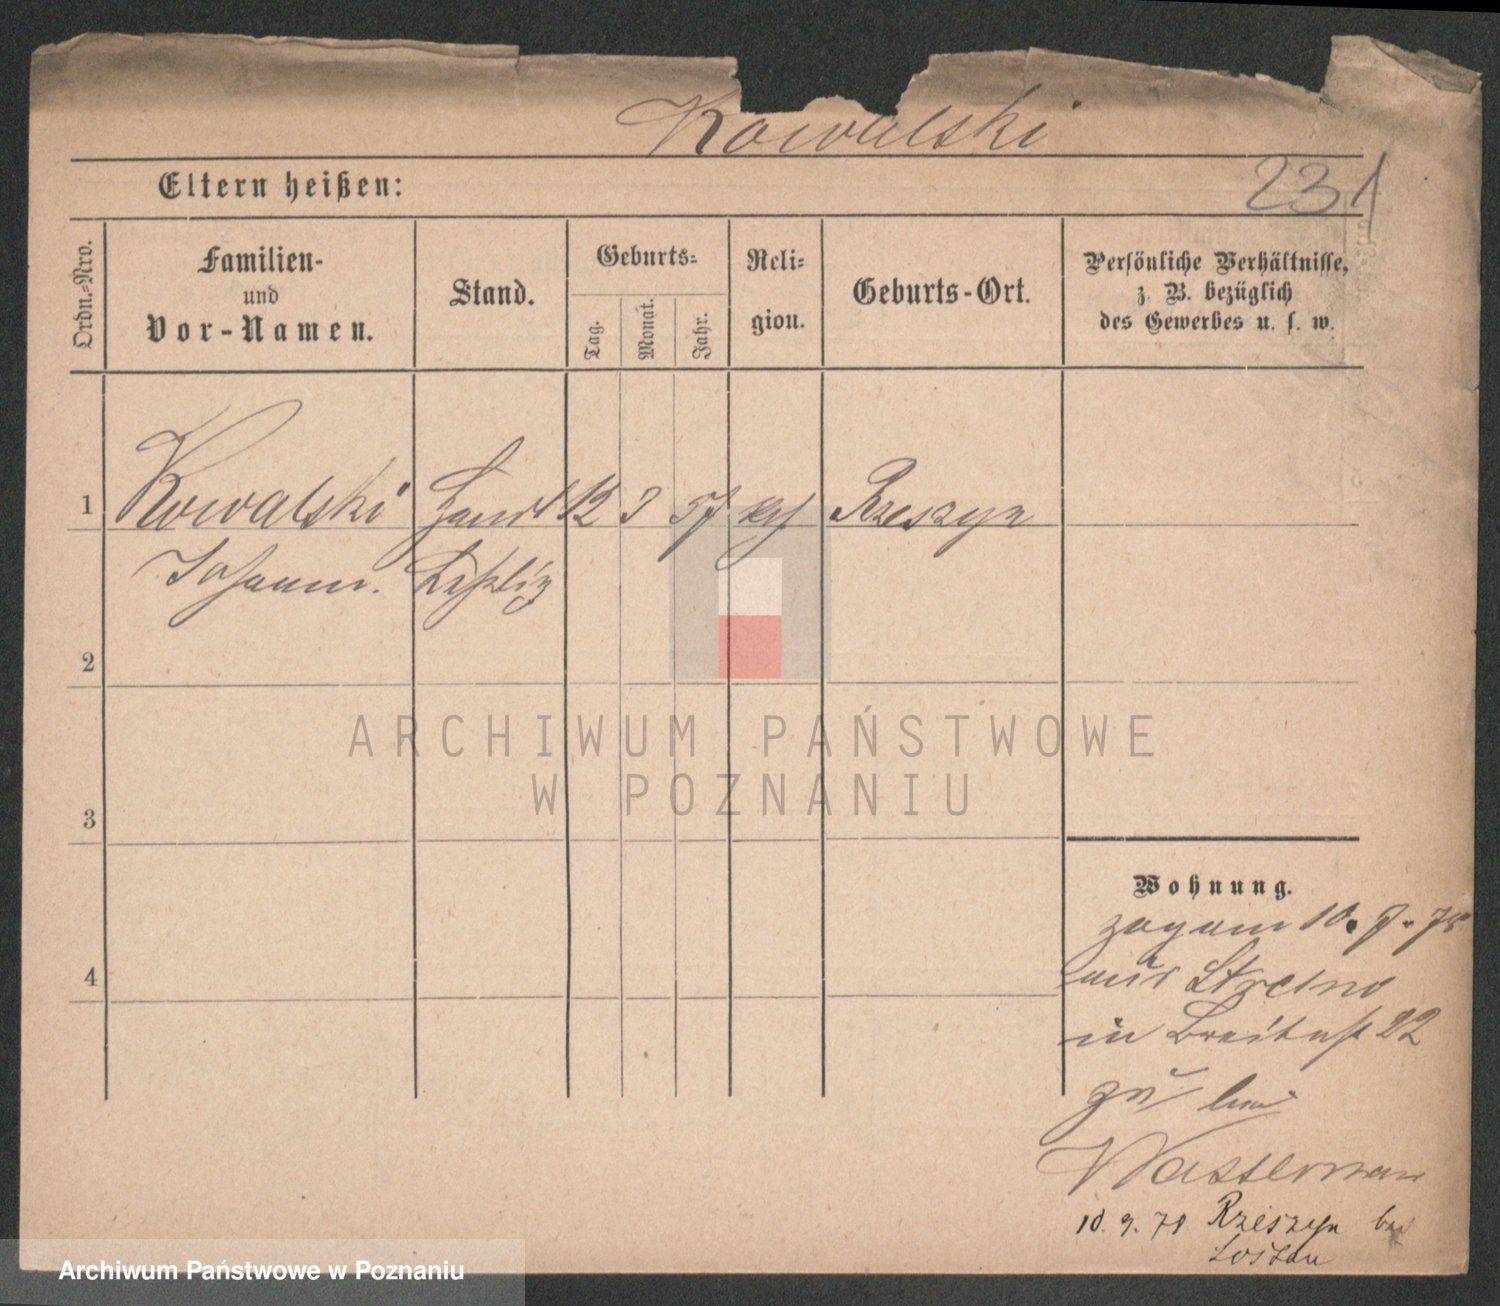 Kowalski
231
Eltern heißen:
Ordn.-Nro.
Familien- und Vor-Namen.
Stand.
Geburts-
Tag.
Monat.
Jahr.
Reli-
gion.
Geburts-Ort.
Persönliche Verhältnisse,
z. B. bezüglich
des Gewerbes u. s. w.
1 Kowalski 12 3 57 Rzeszyn
Johann.
2
3
4
ARCHIWUM PAŃSTWOWE
W POZNANIU
Wohnung.
zog am 10. 78
aus Strelno
in Breitestr 22
zu
Wasserman
10. 9. 78 Rzeszyn bei
Archiwum Państwowe w Poznaniu